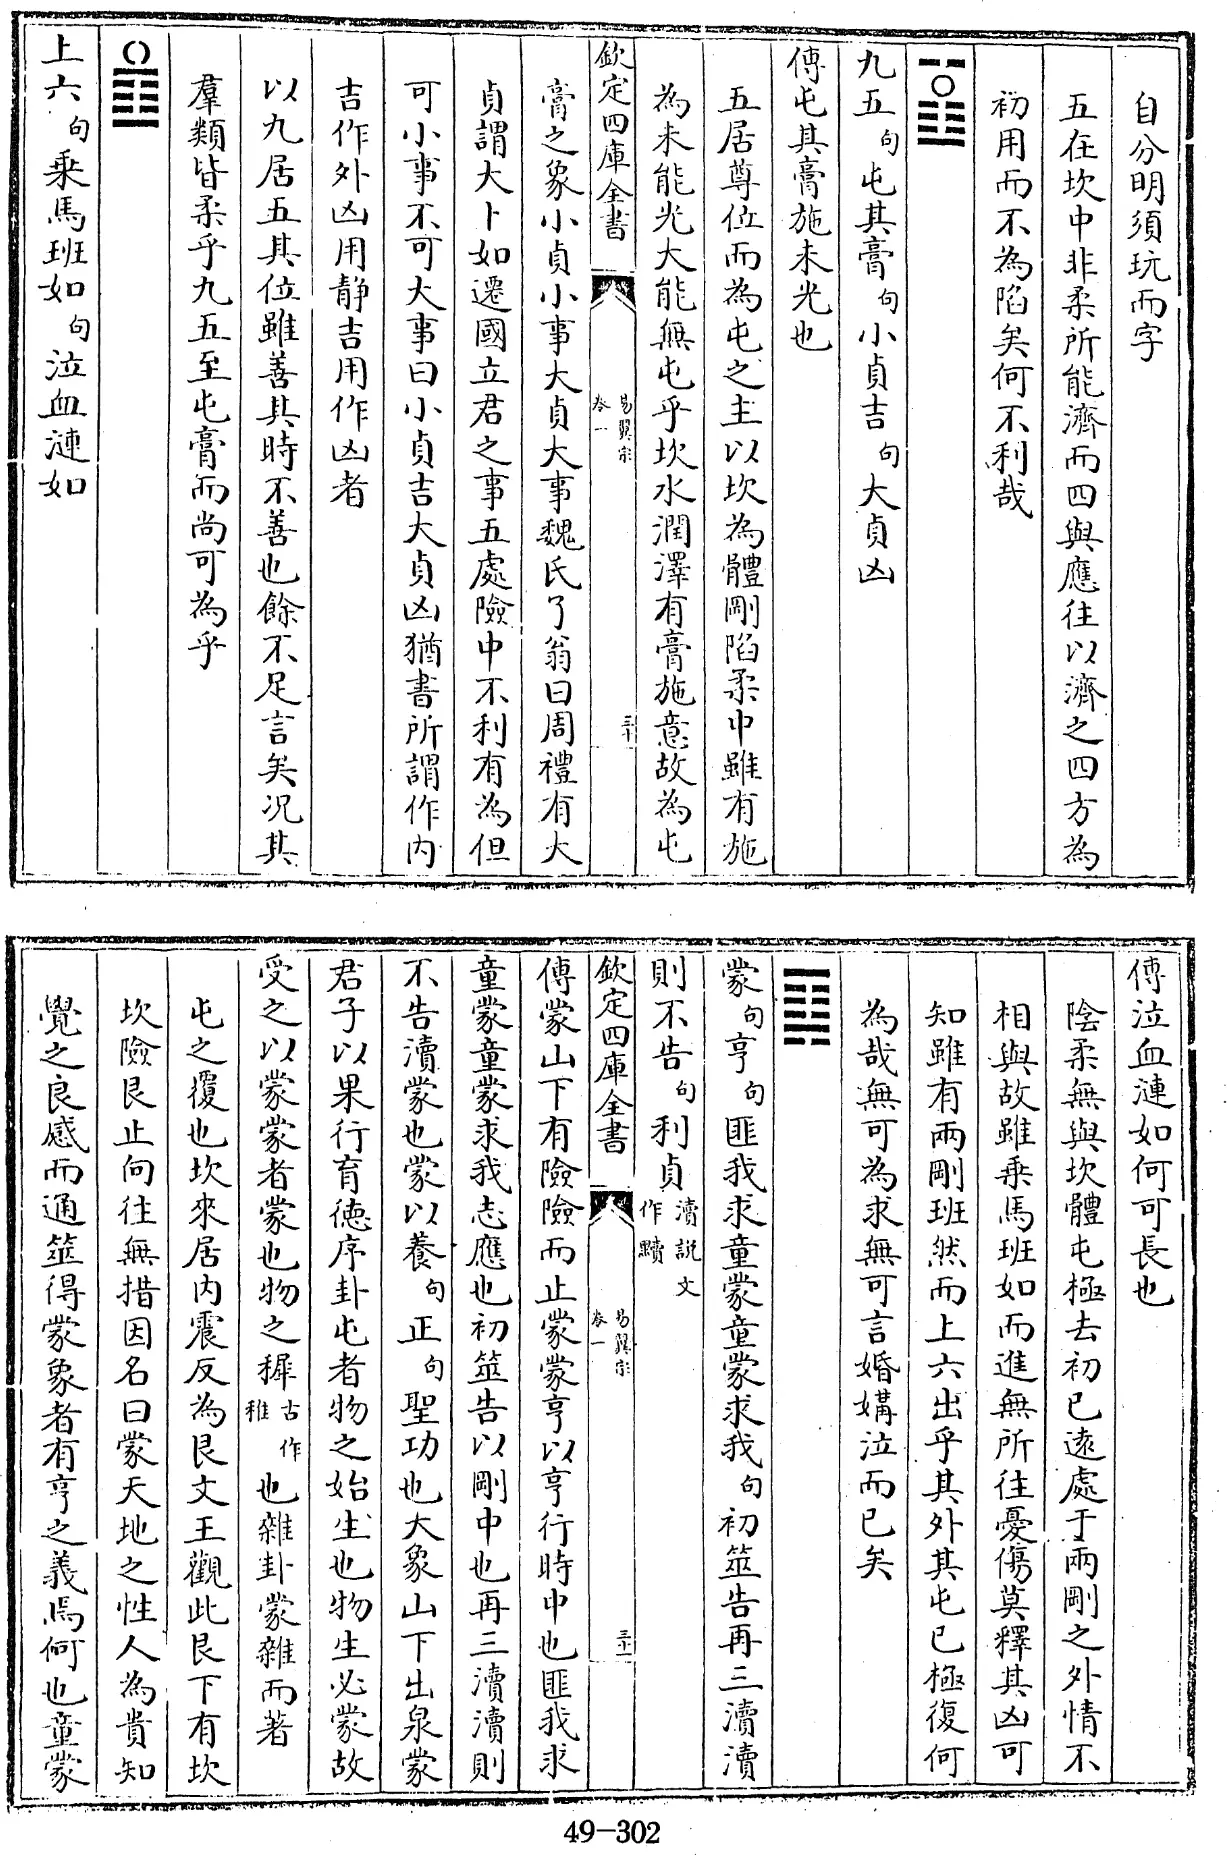 自分明須玩而字
五在坎中非柔所能濟而四與應往以濟之四方為
初用而不為陷矣何不利哉
九五句屯其膏句小貞吉句大貞凶
傳屯其膏施未光也
五居尊位而為屯之主以坎為體剛陷柔中雖有施
為未能光大能無屯乎坎水潤澤有膏施意故為屯
欽定四庫全書
易翼宗
卷一
三十
膏之象小貞小事大貞大事魏氏了翁曰周禮有大
貞謂大卜如遷國立君之事五處險中不利有為但
可小事不可大事曰小貞吉大貞凶猶書所謂作內
吉作外凶用靜吉用作凶者
以九居五其位雖善其時不善也餘不足言矣况其
羣類皆柔乎九五至屯膏而尚可為乎
上六句乗馬班如句泣血漣如
傳泣血漣如何可長也
陰柔無與坎體屯極去初已遠處于兩剛之外情不
相與故雖乗馬班如而進無所往憂傷莫釋其凶可
知雖有兩剛班然而上六出乎其外其屯已極復何
為哉無可為求無可言婚媾泣而已矣
蒙句亨句匪我求童蒙童蒙求我句初筮告再三瀆瀆
則不告句利貞瀆說文
作黷
欽定四庫全書
易翼宗
卷一
三十一
傳蒙山下有險險而止蒙蒙亨以亨行時中也匪我求
童蒙童蒙求我志應也初筮告以剛中也再三瀆瀆則
不告瀆蒙也蒙以養句正句聖功也大象山下出泉蒙
君子以果行育德序卦屯者物之始生也物生必蒙故
受之以蒙蒙者蒙也物之穉古作
稚也雜卦蒙雜而著
屯之覆也坎來居内震反為艮文王觀此艮下有坎
坎險艮止向往無措因名曰蒙天地之性人為貴知
覺之良感而通筮得蒙象者有亨之義焉何也童蒙
49-302